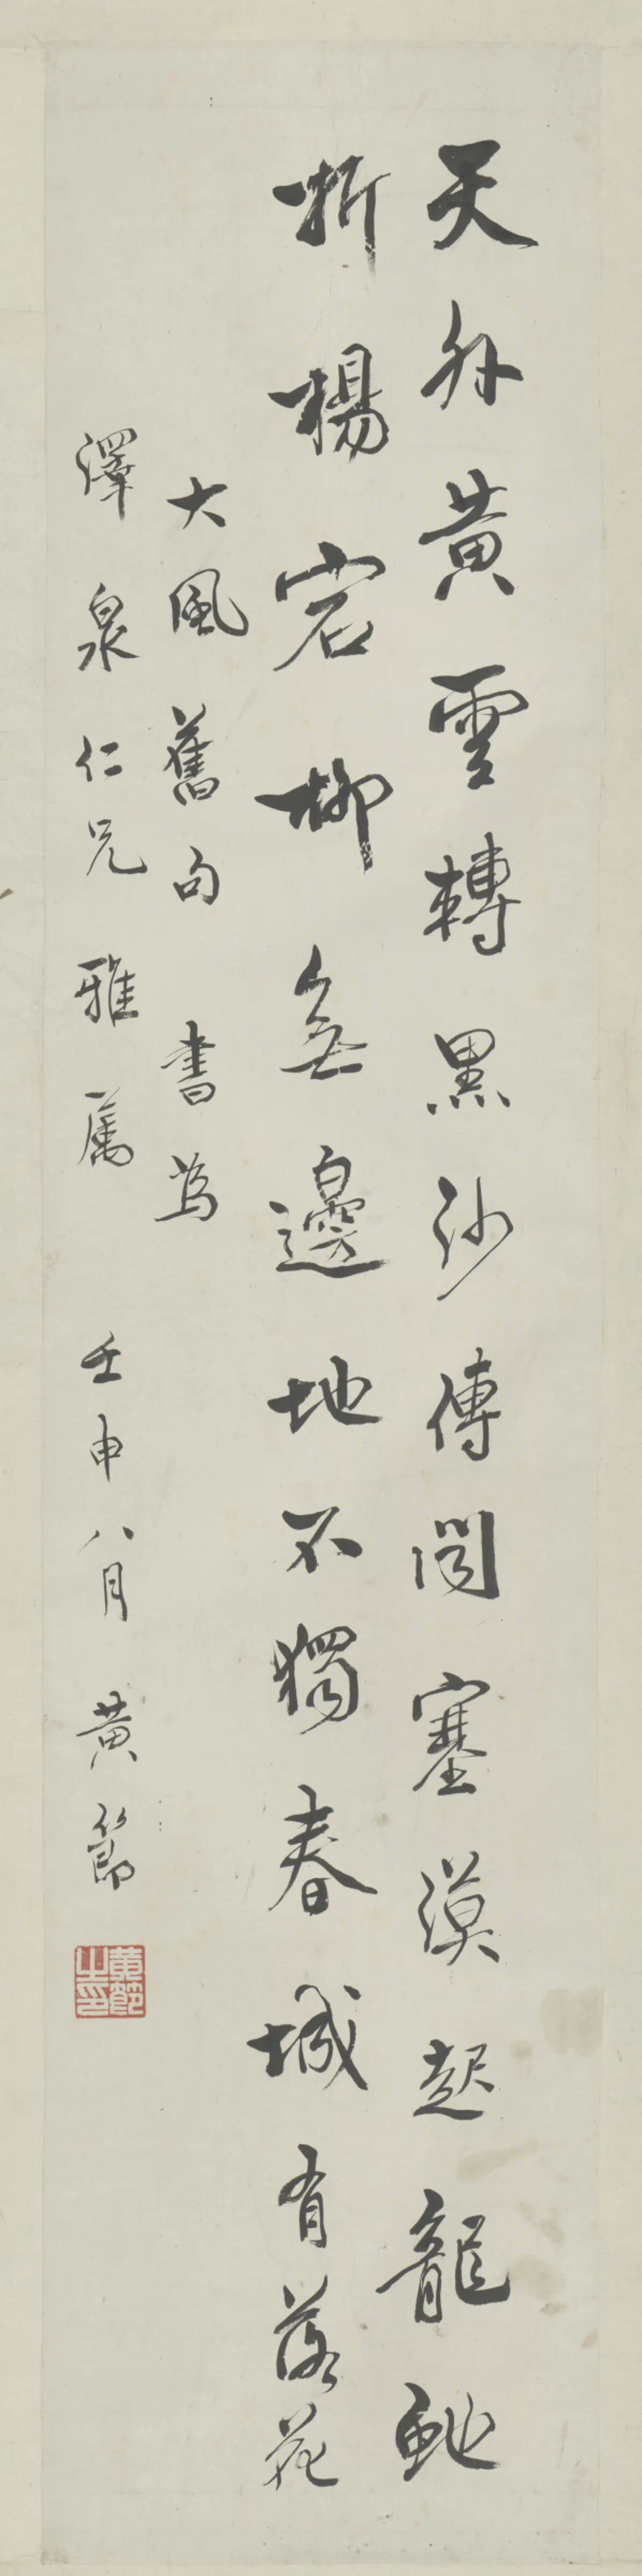 天外黄雲轉黑沙傳聞塞漠起龍蛇
折楊宕柳無邊地不獨春城有落花
大風舊句書為
澤泉仁兄雅属 壬申八月 黄節
黄節之印